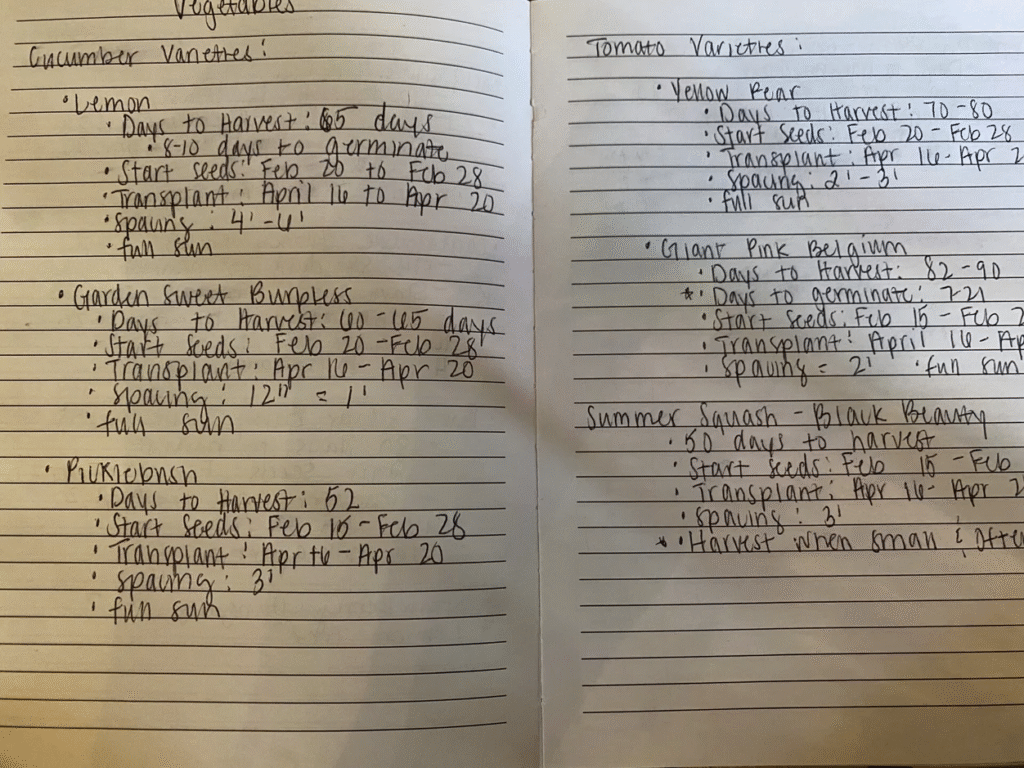 Vegetables
Cucumber Varieties:
• Lemon
• Days to Harvest: 65 days
• 8-10 days to germinate
• Start seeds: Feb 20 to Feb 28
• Transplant: April 16 to Apr 20
• spacing: 4'-6'
• full sun
• Garden Sweet Burpless
• Days to Harvest: 60-65 days
• Start seeds: Feb 20-Feb 28
• Transplant: Apr 16-Apr 20
• spacing: 12" = 1'
• full sun
• Picklebush
• Days to Harvest: 52
• Start seeds: Feb 15-Feb 28
• Transplant: Apr 16-Apr 20
• spacing: 3'
• full sun
Tomato Varieties:
• Yellow Pear
• Days to Harvest: 70-80
• Start seeds: Feb 20-Feb 28
• Transplant: Apr 16-Apr 2
• spacing: 2'-3'
• full sun
• Giant Pink Belgium
• Days to Harvest: 82-90
*• Days to germinate: 7-21
• Start seeds: Feb 15-Feb 2
• Transplant: April 16-Ap
• spacing = 2' • full sun
Summer Squash - Black Beauty
• 50 days to harvest
• Start seeds: Feb 15-Feb
• Transplant: Apr 16-Apr 2
• spacing: 3'
*• Harvest when small & ofte